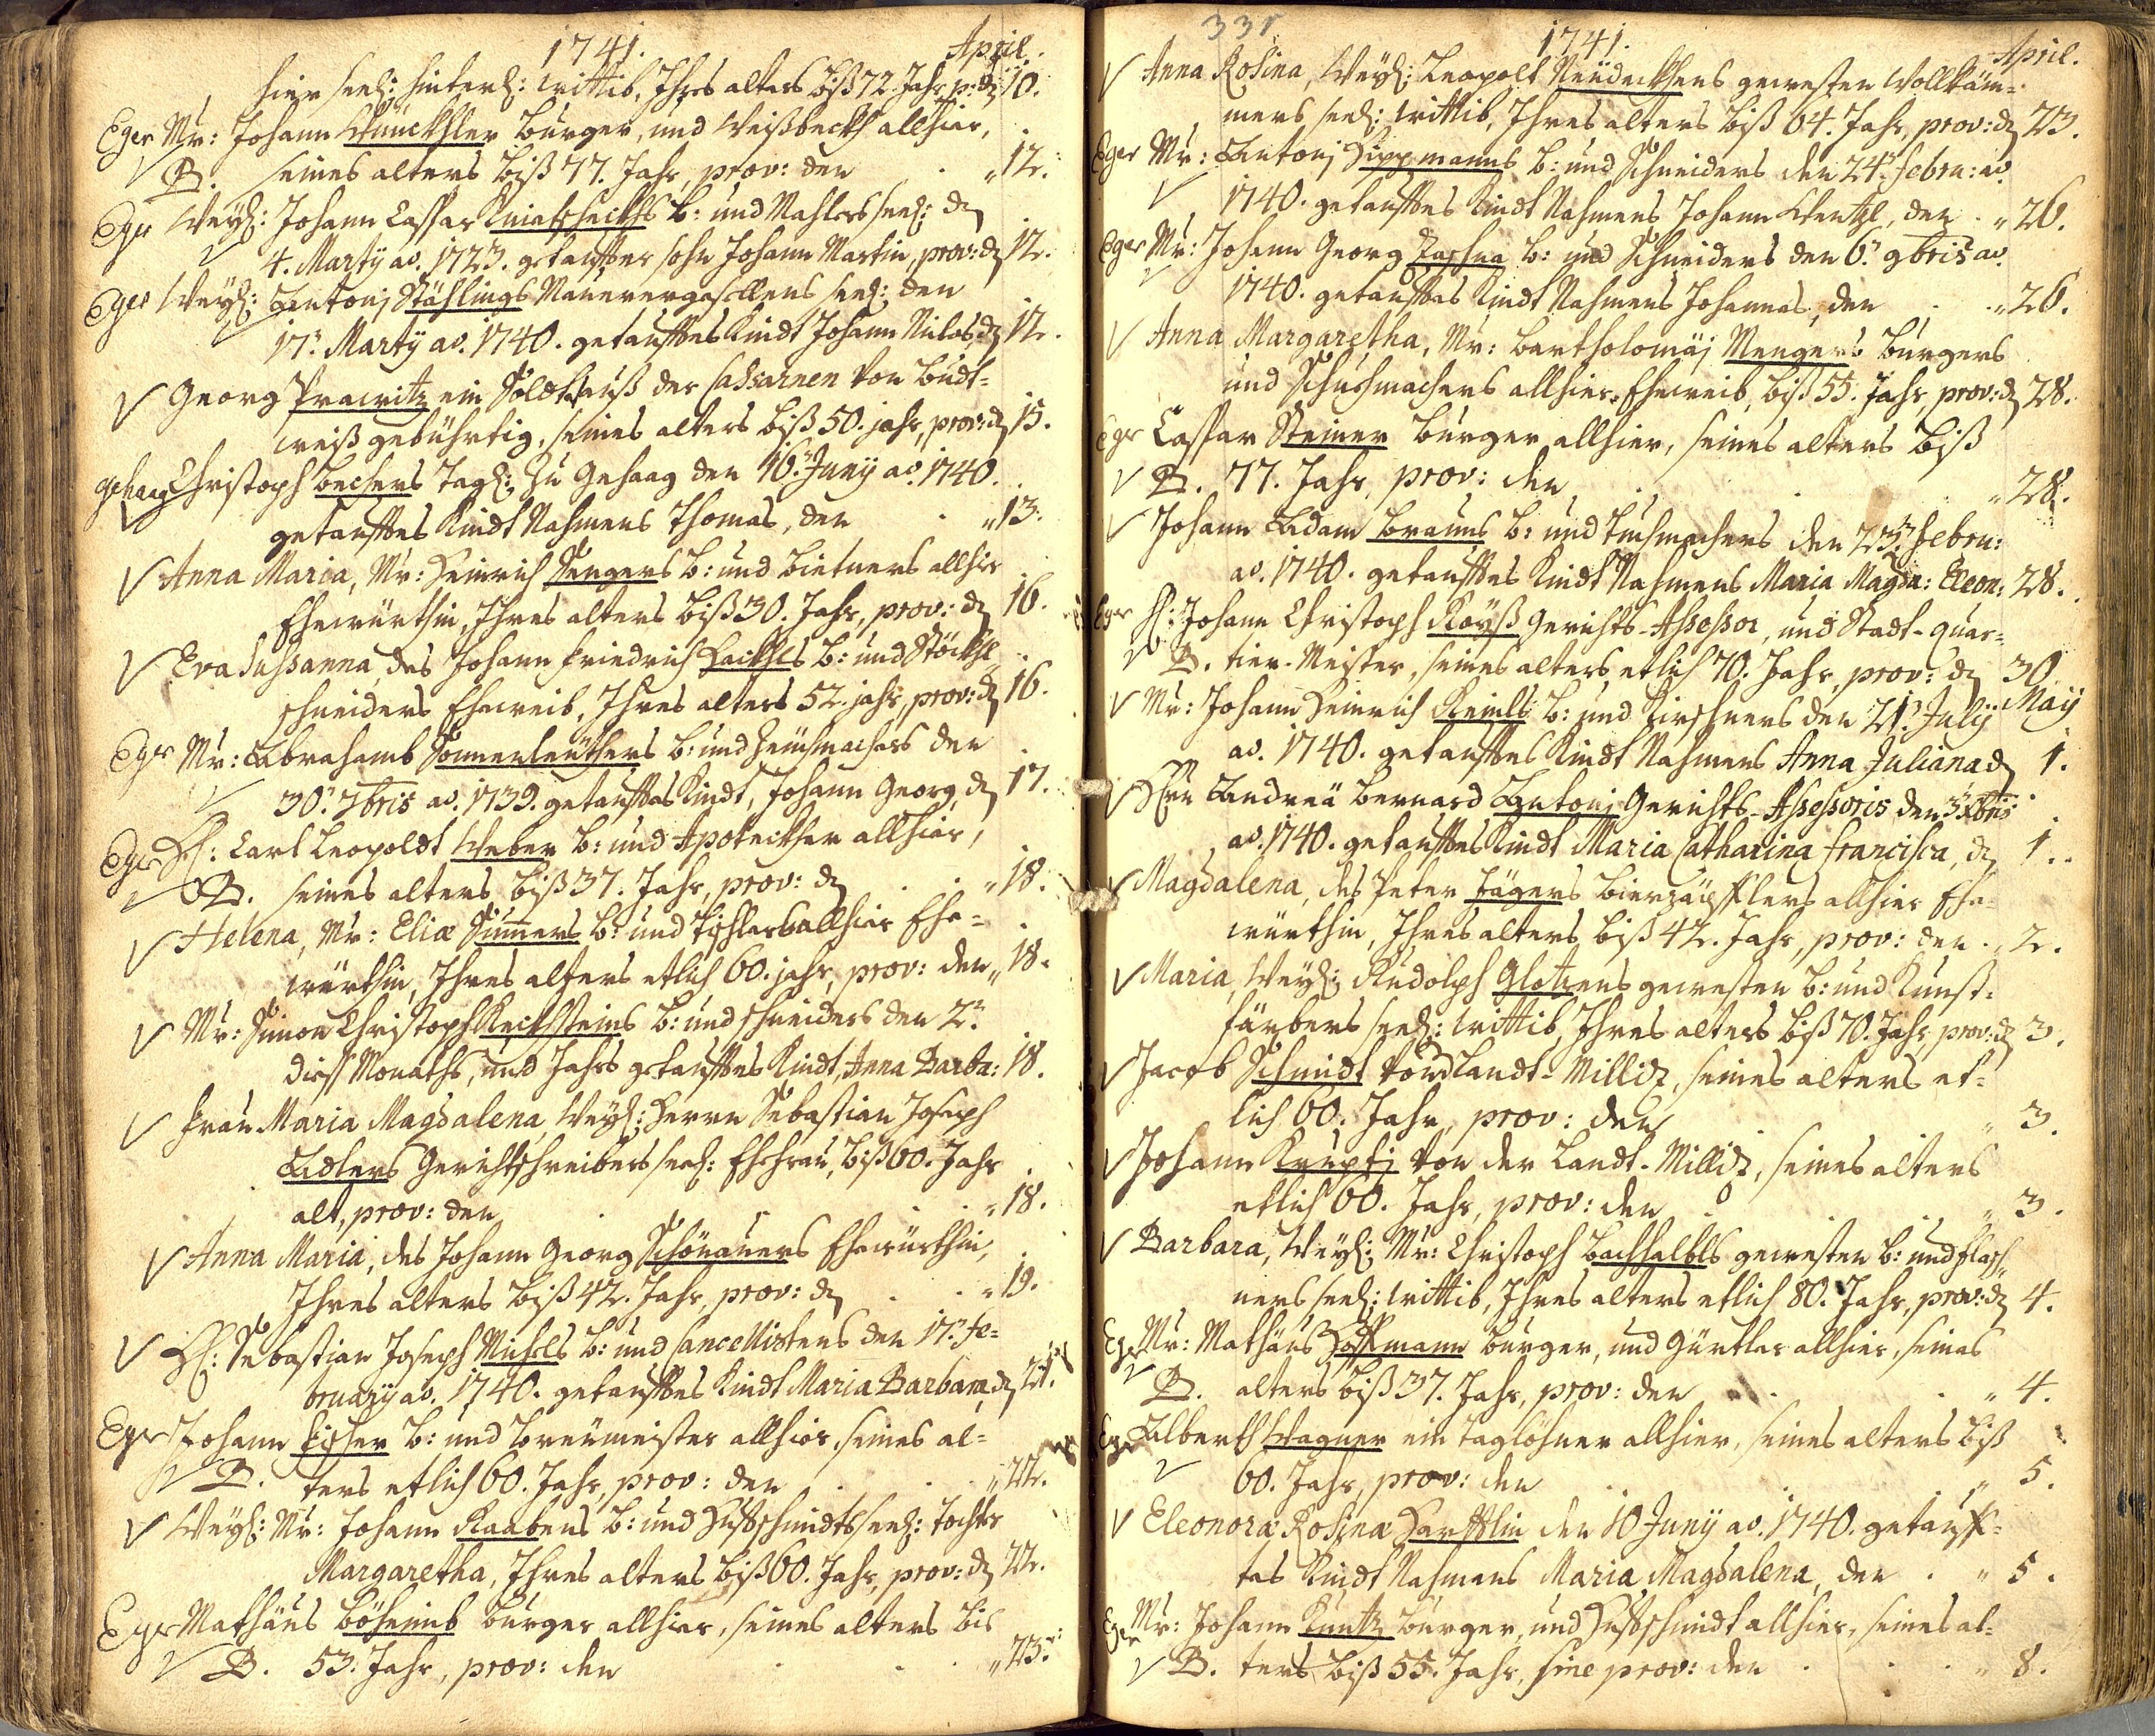 1741.
April.
hier seel: hinterl: wittib, Ihres alters biß 72. Jahr, p: dẽ 10.
Eger Mr: Johann Künckhler burger, und Weißbeckh allhier,
B. seines alters biß 77. Jahr, prov: den " 12.
Eger Weyl: Johann Caspar b: und Mahlers seel: dẽ
4. Martÿ ao. 1723. getauffter sohn Johann Martin, prov: dẽ 12.
Eger Weyl: Antonj Stählings Maurergesellens seel: den
17. Martÿ ao. 1740. getaufftes Kindt Johann Niclas, dẽ 12.
Georg Prawitz ein Soldt auß der Cassarnen von Budt-
weiß gebührtig, seines alters biß 50. jahr, prov: dẽ 13.
gehaag Christoph bechers Tagl: zu Gehaag den 16. Junÿ ao. 1740.
getaufftes Kindt Nahmens Thomas, den " 13.
Anna Maria, Mr: Heinrich Sengers b: und bietners allhier
Ehewürthin, Ihres alters biß 30. Jahr, prov: dẽ 16.
Eva Sussanna, des Johann Friedrich Hackhls b: und Stöckhl
schneiders Eheweib, Ihres alters 52. jahr, prov: dẽ 16.
Eger Mr: Abrahamb Sonnenleuthers b: und Zeuchmachers den
30. 7bris ao. 1739. getaufftes Kindt, Johann Georg, dẽ 17.
Eger H: Carl Leopoldt Weber b: und Apoteckher allhier,
B. seines alters biß 37. Jahr, prov: dẽ " 18.
Helena, Mr: Eliæ Sūmers b: und Tischlers allhier Ehe-
würthin, Ihres alters etlich 60. jahr, prov: den " 18.
Mr: Simon Christoph Reichsteins b: und schneiders den 2.
dieß Monaths, und Jahrs getaufftes Kindt, Anna Barba: 18.
Frau Maria Magdalena, Weyl: Herrn Sebastian Joseph
Adlers Gerichtschreibers seel: Ehefrau, biß 60. Jahr
alt, prov: den " 18.
Anna Maria, des Johann Georg Schönauers Ehewürthin,
Ihres alters biß 42. Jahr, prov: dẽ " 19.
H: Sebastian Joseph Michels b: und Cancellistens den 17. Fe-
bruarÿ ao. 1740. getaufftes Kindt Maria Barbara, dẽ 21.
Eger Johann Fischer b: und breumeister allhier, seines al-
B. ters etlich 60. Jahr, prov: den " 22.
Weyl: Mr: Johann Raabens b: und Hufschmidts seel: tochter
Margaretha, Ihres alters biß 60. Jahr, prov: dẽ 22.
Eger Mathäus böheimb burger allhier, seines alters bis
B. 53. Jahr, prov: den " 23.
331
1741.
April.
Anna Rosina, Weyl: Leopolt Neudeckhens gewesten Wollkäm-
mers seel: wittib, Ihres alters biß 64. Jahr, prov: dẽ 23.
Eger Mr: Antonj Hippmanns b: und Schneiders den 24. Febru: ao.
1740. getaufftes Kindt Nahmens Johann Wentzl, den " 26.
Eger Mr: Johann Georg b: und Schneiders den 6. 9bris ao.
1740. getaufftes Kindt Nahmens Johannes, den " 26.
Anna Margaretha, Mr: Bartholomäj Mengers burgers
und Schuchmachers allhier Eheweib, biß 55. Jahr, prov: dẽ 28.
Eger Caspar Steiner burger allhier, seines alters biß
B. 77. Jahr, prov: den " 28.
Johann Adam Brauns b: und Tuchmachers den 23. Febru:
ao. 1740. getaufftes Kindt Nahmens Maria Magda: Eleon: 28.
Eger H: Johann Christoph Royß Gerichts-Assessor, und Stadt-quar-
B. tier-Meister, seines alters etlich 70. Jahr, prov: dẽ 30.
Maÿ
Mr: Johann Heinrich Reinls b: und Kirschners den 21. Julÿ
ao. 1740. getaufftes Kindt Nahmens Anna Juliana dẽ 1.
Herrn Andreä Bernard Antonj Gerichts-Assessoris den 3. Xbris
ao. 1740. getaufftes Kindt Maria Catharina Francisca, dẽ 1.
Magdalena, des Peter Jägers bierzäpfflers allhier Ehe-
würthin, Ihres alters biß 42. Jahr, prov: den " 2.
Maria, Weyl: Rudolph Glotzens gewesten b: und Kunst-
färbers seel: wittib, Ihres alters biß 70. Jahr, prov: dẽ 3.
Jacob Schmidt von Landt-Millitz, seines alters et-
lich 60. Jahr, prov: den " 3.
Johann Krupfj von der Landt-Millitz, seines alters
etlich 60. Jahr, prov: den " 3.
Barbara, Weyl: Mr: Christoph Bachhalbls gewesten b: und flasch
ners seel: wittib, Ihres alters etlich 80. Jahr, prov: dẽ 4.
Eger Mr: Mathäus Hoffmann burger, und Gürtler allhier, seines
B. alters biß 37. Jahr, prov: den " 4.
Eger Alberth Wagner ein taglöhner allhier, seines alters biß
60. Jahr, prov: den " 5.
Eleonoræ Rosinæ Harttlin den 10 Junÿ ao. 1740. getauff-
tes Kindt Nahmens Maria Magdalena, den " 5.
Eger Mr: Johann Kuntz burger, und Hufschmidt allhier, seines al-
B. ters biß 55. Jahr, sine prov: den " 8.